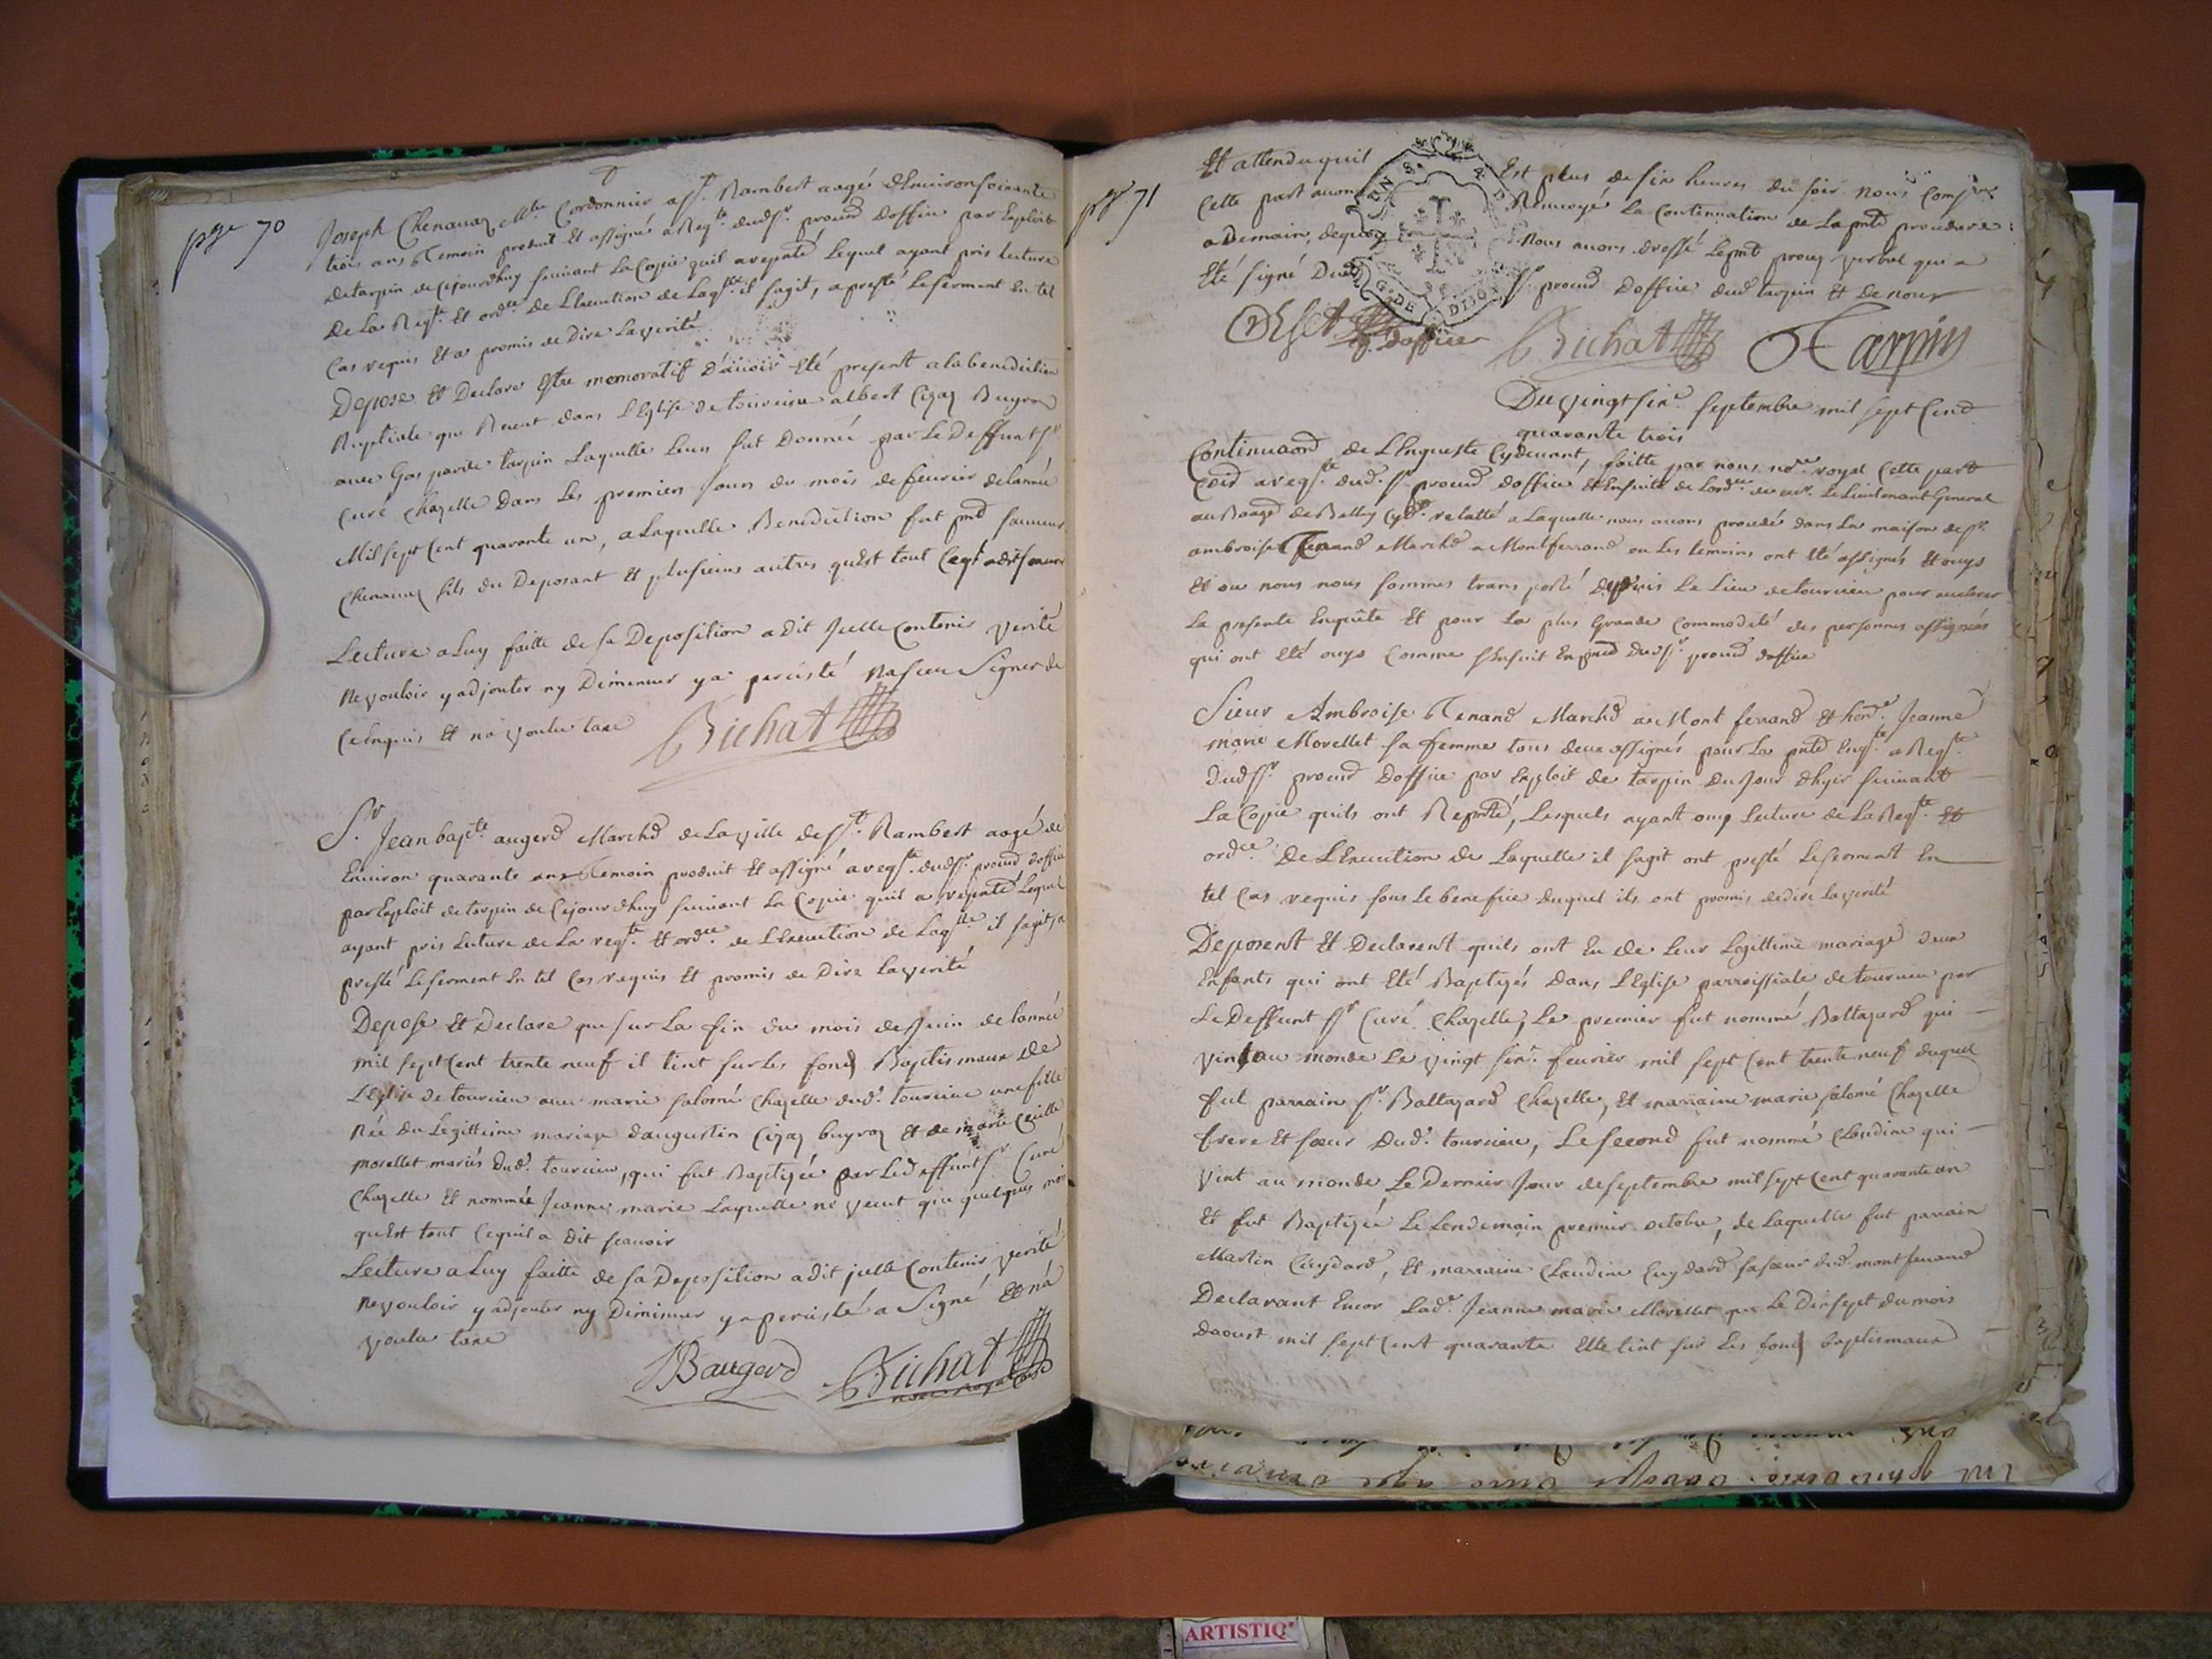 pge 70
Joseph Chenavaz Mtre Cordonnier a St Rambert aagé d'Environ soixante
trois ans Temoin produit Et assigné a Reqte dudt Sr procur d'office par Exploit
de tarpin de cejourdhuy suivant La Copie quil a reptée Lequel ayant pris lecture
De La Reqte Et ordce De L'Execution de Laqlle il s'agit, a presté Le serment En tel
Cas requis Et a promis de Dire La verité
Depose Et Declare Estre memoratif D'avoir Eté present a la benediction
Nuptiale que Receut dans L'Eglise de tourcieu albert Cizaz Buyron
avec Gasparde tarpin Laquelle Leur fut Donnée par Le Deffunt Sr
Curé Chazelle Dans Les premiers Jours du mois de fevrier de lannée
Mil sept Cent quarante un, a Laquelle Benediction fut pnt
Chenavaz fils du Deposant Et plusieurs autres qu'Est tout Ce qt a dit scavoir
Lecture a Luy faitte de sa Deposition a dit Icelle Contenir verité
Ne vouloir y adjouter ny Diminuer y a percisté Na sceu Signer de
Ce Enquis Et na voulu taxe
Bichat
Sr Jean bapte augerd Marchd de La ville de St Rambert aagé de
Environ quarante ans Temoin produit Et assigné a reqte dudt Sr procur d'office
par Exploit de tarpin de Cejourdhuy suivant La Copie quil a reptée Lequel
ayant pris Lecture de La reqte Et ordce de L'Execution de Laqlle il s'agit, a
presté Le serment En tel Cas requis Et promis de Dire La verité
Depose Et Declare que sur La fin du mois de Juin de lannée
mil sept Cent trente neuf il tint sur les fonds Baptismaux de
L'Eglise de tourcieu avec marie salomé Chazelle dudt tourcieu une fille
Née Du Legittime mariage d'augustin Cizaz buyroz Et de marie Cecille
morellet mariés Dudt tourcieu, qui fut Baptizée par Le deffunt Sr Curé
Chazelle Et nommée Jeanne marie Laquelle ne vecut que quelques mois
qu'Est tout Ce quil a Dit scavoir
Lecture a Luy faitte de sa Deposition a dit jcelle Contenir verité
ne vouloir y adjouter ny Diminuer y a percisté a Signé Et na
voulu taxe
JBaugerd Bichat
notre royal
pge 71
Et attendu quil Est plus de six heures du soir nous Compre
Cette part avons Renvoyé La Continuation de La pnte procedure
a Demain, dequoy Nous avons dressé Le pnt proces verbal qui a
Eté signé Dudt Sr procur Doffice dudt tarpin Et de nous
GEN DE DIJON
p. doffice Bichat Tarpin
Du vingt six septembre mil sept Cent
quarante trois
Continuaon de L'Enqueste Cydevant, faitte par nous nore royal Cette part
a reqte dudt Sr procur d'office Et Ensuite de Lordce de mr Le Lieutenant General
au Baage de Belley Cydt relatté a Laquelle nous avons procédé dans La maison de Sr
ambroise Tenand Marchd a Montferrand ou Les temoins ont Eté assignés Et ouys
Et ou nous nous sommes transporté depuis Le Lieu de tourcieu pour accelerer
La presente Enquête Et pour La plus Grande Commodité des personnes assignées
qui ont Eté ouys Comme s'Ensuit dudt Sr procur d'office
Sieur Ambroise Tenand Marchd au Mont ferrand Et honte Jeanne
marie Morellet sa femme tous deux assignés pour La pnte Enqte a Reqte
Dudt Sr procur Doffice par Exploit de tarpin Du Jour d'hyer suivant
La Copie quils ont Reptée, Lesquels ayant ouy Lecture de La Reqte Et
ordce De L'Execution de Laquelle il s'agit ont presté Le serment En
tel Cas requis sous Le benefice duquel ils ont promis de dire La verité
Deposent Et Declarent quils ont Eu de Leur Legittime mariage Deux
Enfants qui ont Eté Baptizés Dans L'Eglise parroissiale de tourcieu par
Le Deffunt Sr Curé Chazelle, Le premier fut nommé Baltazard qui
vint au monde Le vingt six fevrier mil sept Cent trente neuf duquel
fut parrain Sr Baltazard Chazelle, Et marraine marie salomé Chazelle
frere Et sœur Dudt tourcieu, Le second fut nommé Claudine qui
vint au monde Le Dernier Jour de septembre mil sept Cent quarante un
Et fut Baptizée Le Lendemain premier octobre, de Laquelle fut parrain
Martin Cuydard, Et marraine Claudine Cuydard sa sœur dudt montferrand
Declarant Encor Ladte Jeanne marie Morellet que Le Dixsept du mois
Daoust mil sept Cent quarante Elle tint sur Les fonds baptismaux
ARTISTIQ